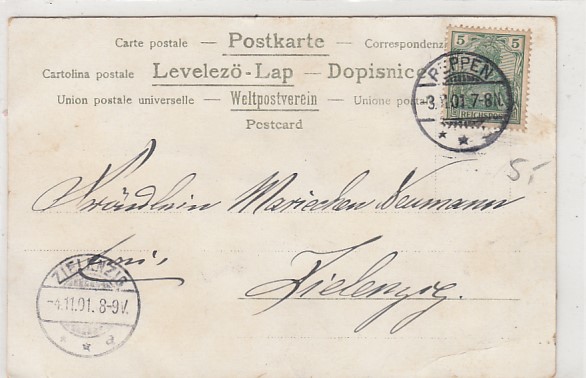 Carte postale — Postkarte — Correspondenz
Cartolina postale — Levelező-Lap — Dopisnice
Union postale universelle — Weltpostverein — Unione posta
Postcard
5 5
REICHSPOST
PEPPEN
3.11.01.7-8N.
5,-
Fräulein Mariechen Neumann
Zielenzig.
ZIELENZIG
-4.11.01.8-9V.
* * a